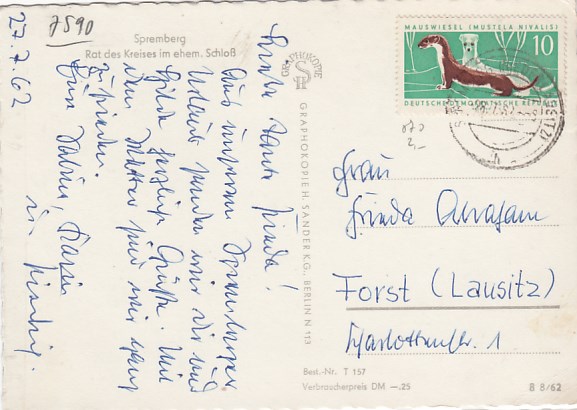 7590
Spremberg
Rat des Kreises im ehem. Schloß
27.7.62
Tante Frieda!
Aus unserem Spremberger
Urlaub senden wir Dir und
herzliche Grüße. Mit
dem Wetter sind wir ganz
zufrieden.
GRAPHOKOPIE
GRAPHOKOPIE H. SANDER K.G., BERLIN N 113
MAUSWIESEL (MUSTELA NIVALIS)
10
DEUTSCHE DEMOKRATISCHE REPUBLIK
Frau
Frieda
Forst (Lausitz)
Charlottenstr. 1
Best.-Nr. T 157
Verbraucherpreis DM —.25
B 8/62